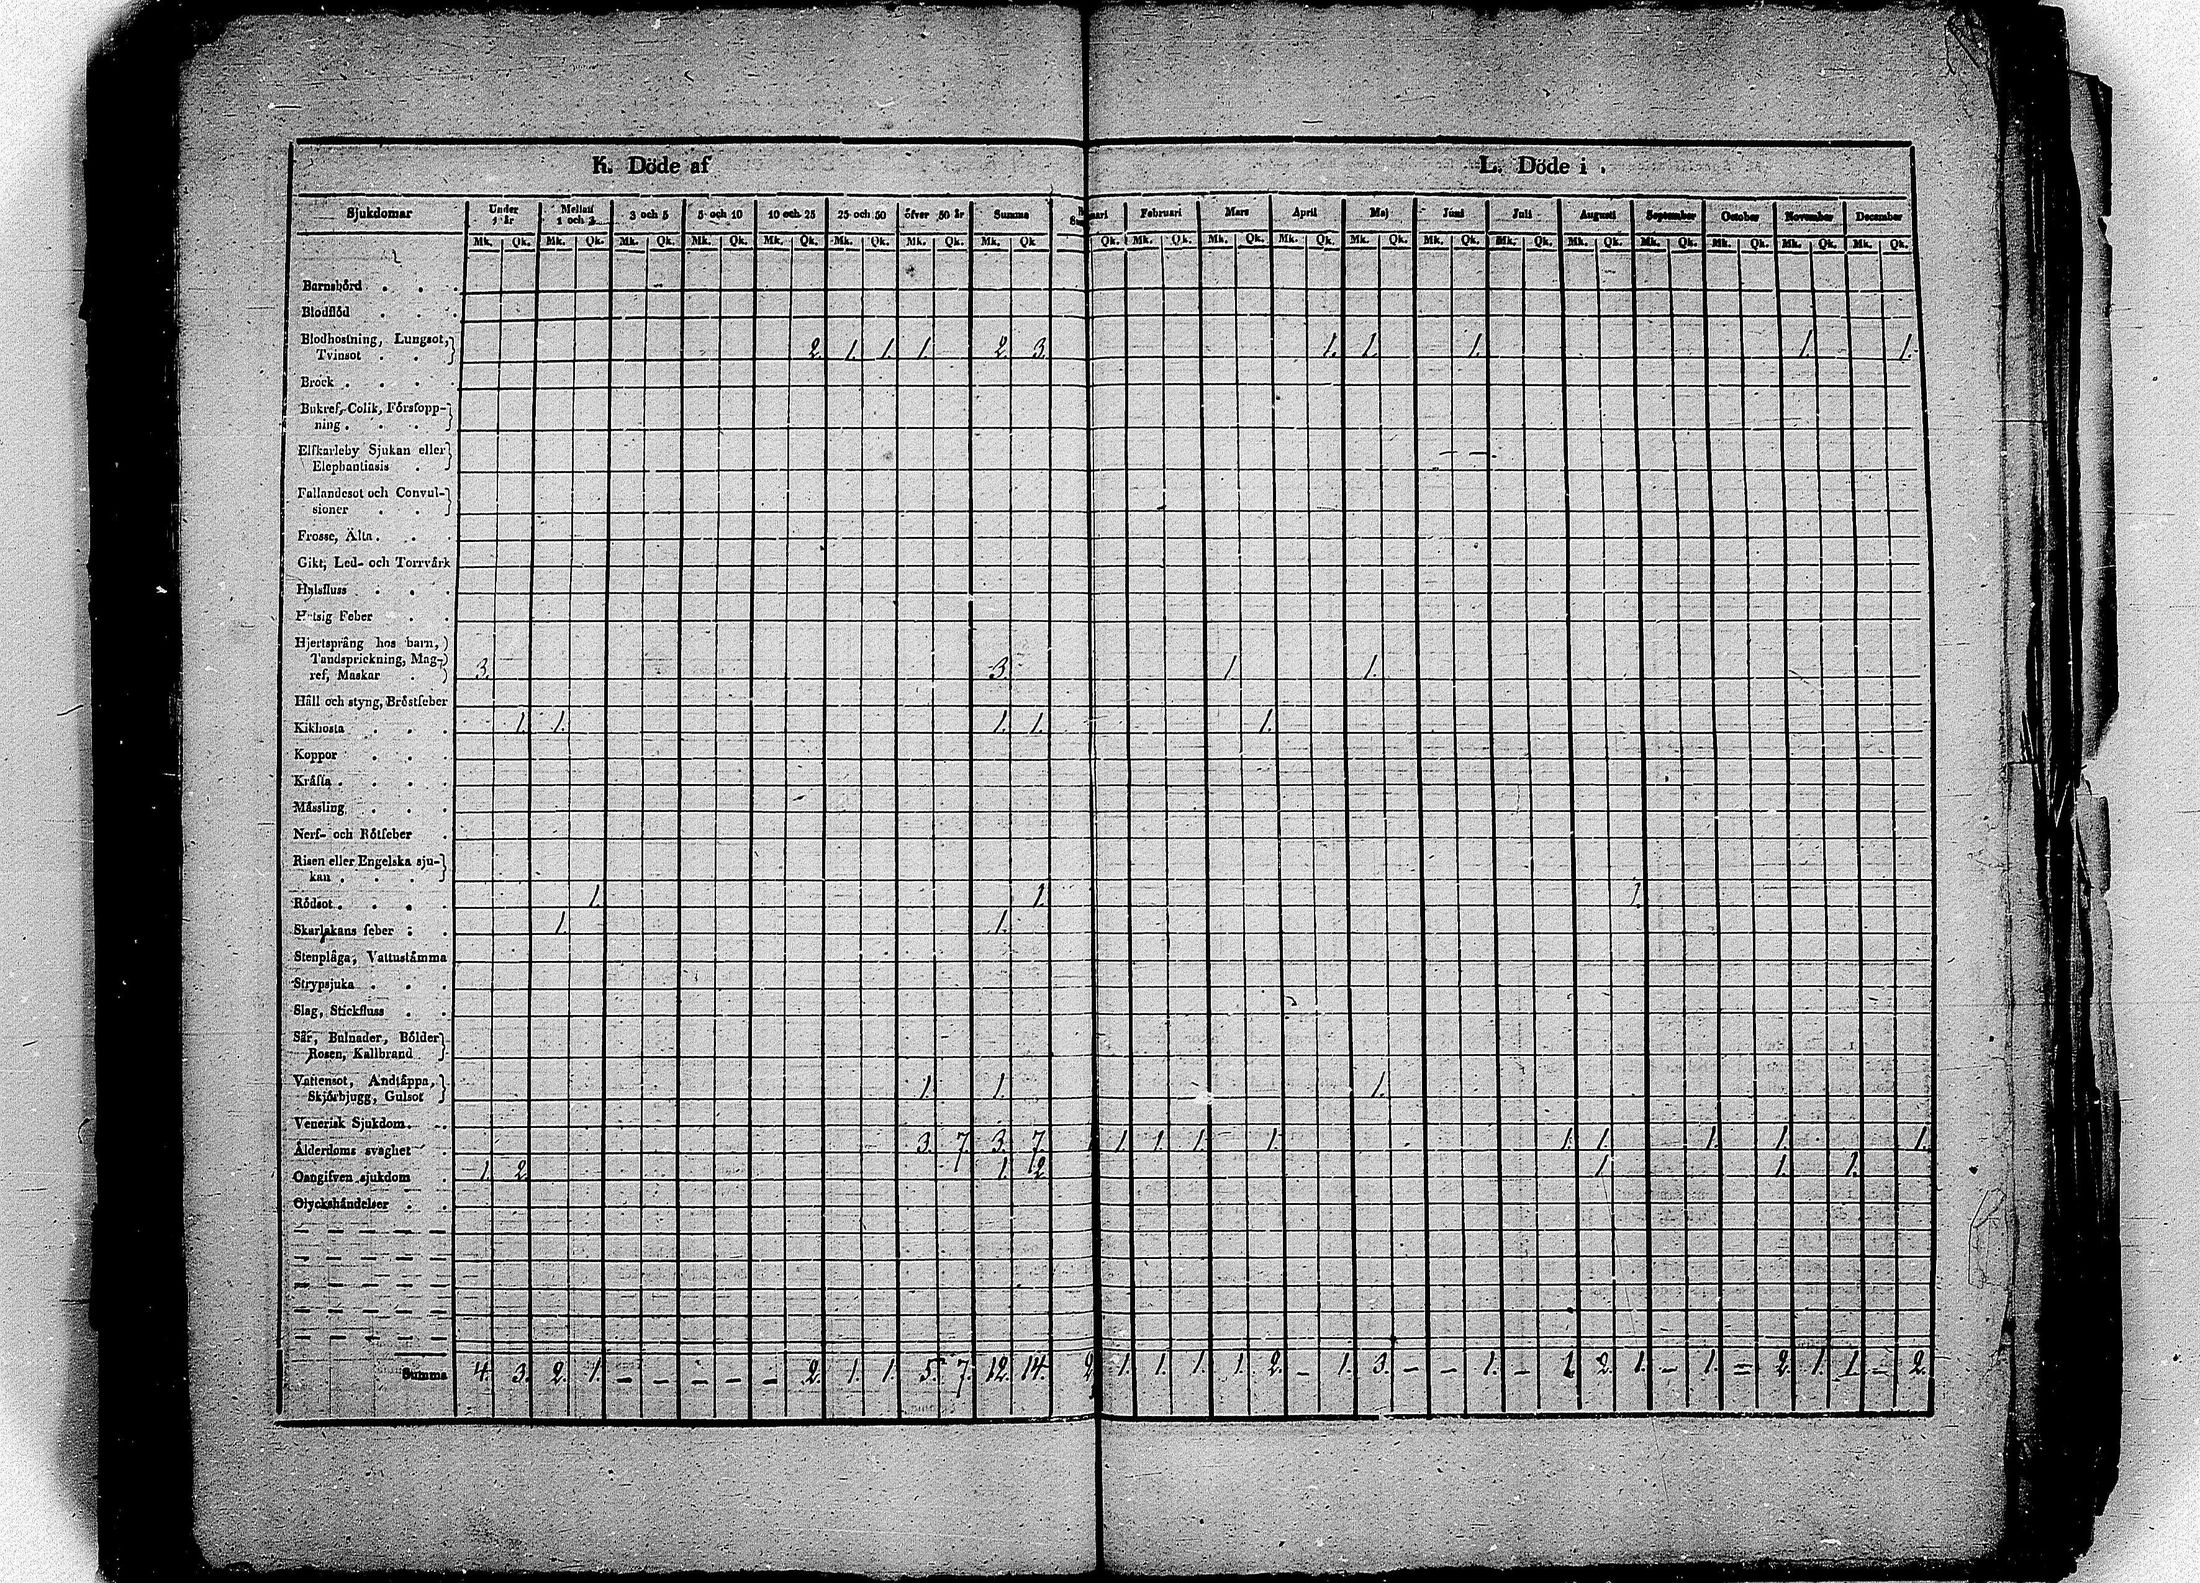 K. Döde af
L. Döde i
Sjukdomar Under 1 år Mellan 1 och 3 3 och 5 5 och 10 10 och 25 25 och 50 öfver 50 år Summa
Februari Mars April Maj Juni Juli Augusti September October November December
Mk. Qk. Mk. Qk. Mk. Qk. Mk. Qk. Mk. Qk. Mk. Qk. Mk. Qk. Mk. Qk
Qk. Mk. Qk. Mk. Qk. Mk. Qk. Mk. Qk. Mk. Qk. Mk. Qk. Mk. Qk. Mk. Qk. Mk. Qk. Mk. Qk. Mk. Qk.
Barnsbörd . . .
Blodflöd . . .
Blodhostning, Lungsot,
Tvinsot . . 2. 1. 1. 1. 2. 3. 1. 1. 1. 1. 1.
Bråck . . . .
Bukref, Colik, Förstopp-
ning . . .
Elfkarleby Sjukan eller
Elephantiasis . — —
Fallandesot och Convul-
sioner . .
Frosse, Älta . . .
Gikt, Led- och Torrvärk
Halsfluss . . .
Hetsig Feber . .
Hjertsprång hos barn,
Tandsprickning, Mag-
ref, Maskar . 3. 3. 1. 1.
Håll och styng, Bröstfeber
Kikhosta . . . 1. 1. 1. 1. 1.
Koppor . . .
Kräfta . . . .
Mässling . . .
Nerf- och Rötfeber .
Risen eller Engelska sju-
kan . . .
Rödsot . . . . 1. 1. 1.
Skarlakans feber . . 1. 1.
Stenplåga, Vattustämma
Strypsjuka . . .
Slag, Stickfluss . .
Sår, Bulnader, Bölder
Rosen, Kallbrand
Vattensot, Andtäppa,
Skjörbjugg, Gulsot 1. 1. 1.
Venerisk Sjukdom . . .
Ålderdoms svaghet . 3. 7. 3. 7. 1. 1. 1. 1. 1. 1. 1. 1. 1.
Oangifven sjukdom . 1. 2. 1. 2. 1. 1. 1.
Olyckshändelser . .
Summa 4. 3. 2. 1. — — — — — 2. 1. 1. 5. 7. 12. 14. 2. 1. 1. 1. 1. 2. — 1. 3. — — 1. — 1. 2. 1. — 1. = 2. 1. 1. — 2.